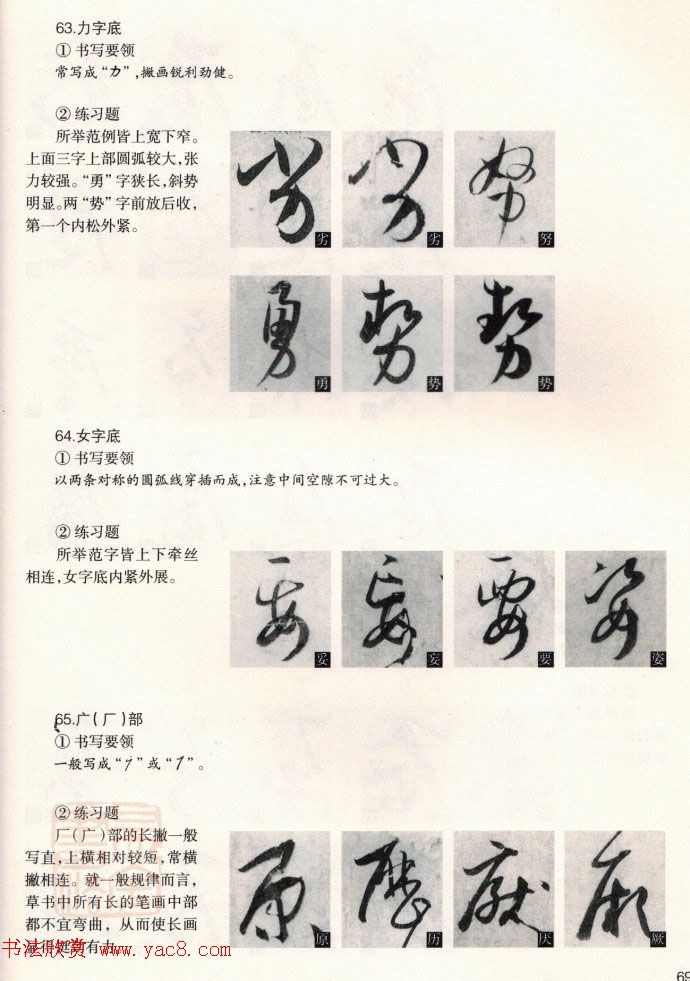 63.力字底
① 书写要领
常写成“力”,撇画锐利劲健。
② 练习题
所举范例皆上宽下窄。
上面三字上部圆弧较大,张
力较强。“勇”字狭长,斜势
明显。两“势”字前放后收,
第一个内松外紧。
劣 劣 努
勇 势 势
64.女字底
① 书写要领
以两条对称的圆弧线穿插而成,注意中间空隙不可过大。
② 练习题
所举范字皆上下牵丝
相连,女字底内紧外展。
妥 妄 要 姿
65.广(厂)部
① 书写要领
一般写成“”或“”。
② 练习题
厂(广)部的长撇一般
写直,上横相对较短,常横
撇相连。就一般规律而言,
草书中所有长的笔画中部
都不宜弯曲,从而使长画
显得挺劲有力。
原 历 厌 厥
书法欣赏 www.yac8.com
69